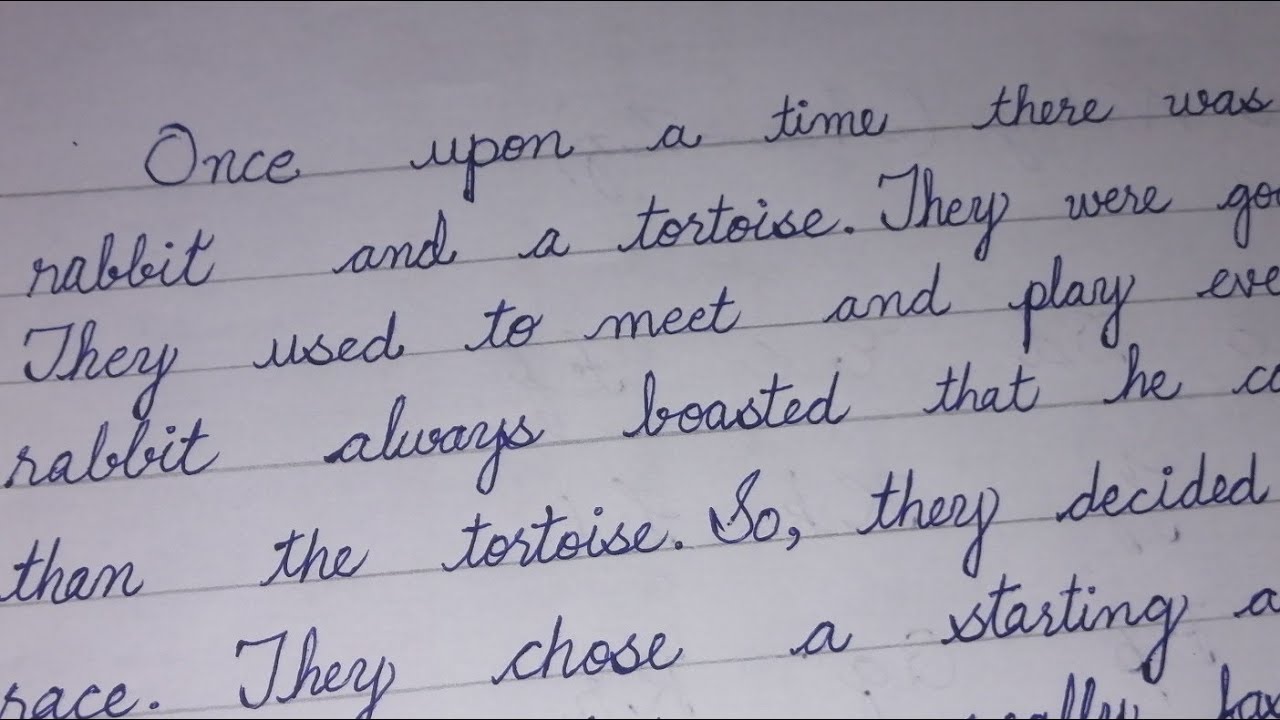 Once upon a time there was
rabbit and a tortoise. They were
They used to meet and play
rabbit always boasted that he
than the tortoise. So, they decided
race. They chose a starting